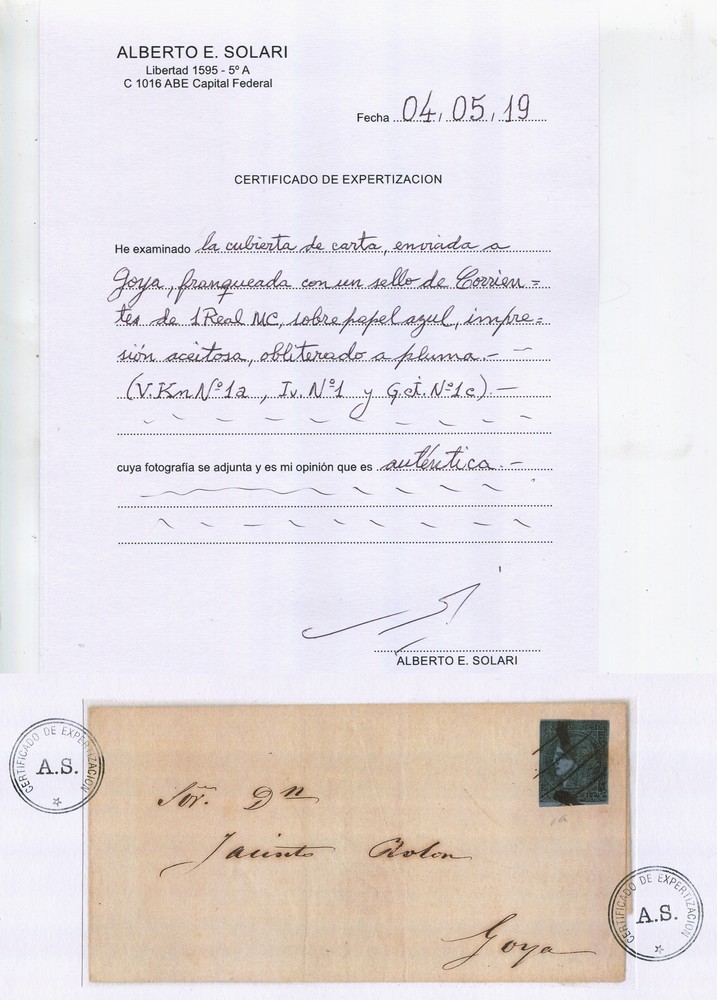 ALBERTO E. SOLARI
Libertad 1595 - 5º A
C 1016 ABE Capital Federal
Fecha 04 / 05 / 19
CERTIFICADO DE EXPERTIZACION
He examinado la cubierta de carta, enviada a
Goya, franqueada con un sello de Corrien=
tes de 1 Real MC, sobre papel azul, impre=
sión aceitosa, obliterado a pluma.-
(V.Kn Nº1a, Iv. Nº1 y G.cI. Nº1c).-
cuya fotografía se adjunta y es mi opinión que es auténtica.-
ALBERTO E. SOLARI
CERTIFICADO DE EXPERTIZACION
A.S.
Sor. Dn
Jacinto Rolon
Goya
1a
CERTIFICADO DE EXPERTIZACION
A.S.